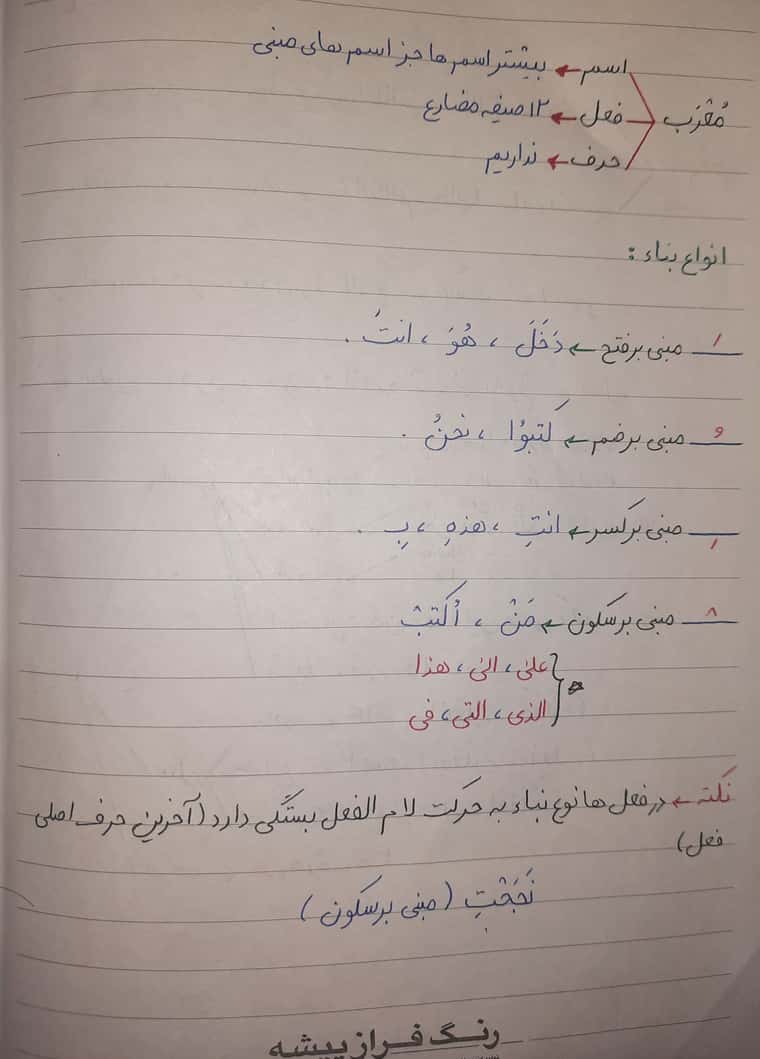 اسم ← بیشتر اسم ها جز اسم های مبنی
مُعْرَب فعل ← ۱۲ صیغه مضارع
حرف ← نداریم
انواع بناء :
ـَ مبنی بر فتح ← دَخَلَ ، هُوَ ، انتَ .
ـُ مبنی بر ضم ← کتبُوا ، نحنُ .
ـِ مبنی بر کسر ← انتِ ، هذهِ ، بِ .
ـْ مبنی بر سکون ← مَنْ ، اُکتبْ
علی ، الی ، هذا
الذی ، التی ، فی
نکته ← در فعل ها نوع بناء به حرکت لام الفعل بستگی دارد (آخرین حرف اصلی
فعل)
نَجَحْتِ (مبنی بر سکون)
رنگ فراز پیشه